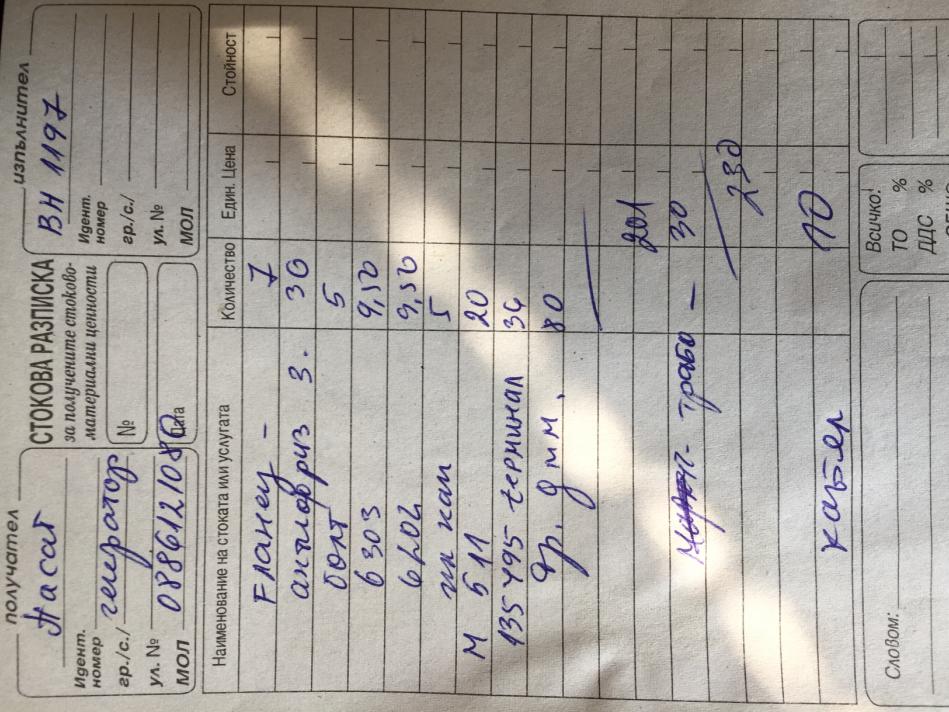 получател
Пасат
Идент.
номер
гр./с./ генератор
ул. №
0886121080
МОЛ
СТОКОВА РАЗПИСКА
за получените стоково-
материални ценности
№
Дата
изпълнител
ВН 1197
Идент.
номер
гр./с./
ул. №
МОЛ
Наименование на стоката или услугата Количество Един. Цена Стойност
Фланец - 7
антифриз 3. 36
болт 5
6303 9,50
6202 9,50
5
М 511 20
135495 терминал 34
80
201
трабо - 30
230
10
Словом:
Всичко:
ТО %
ДДС %